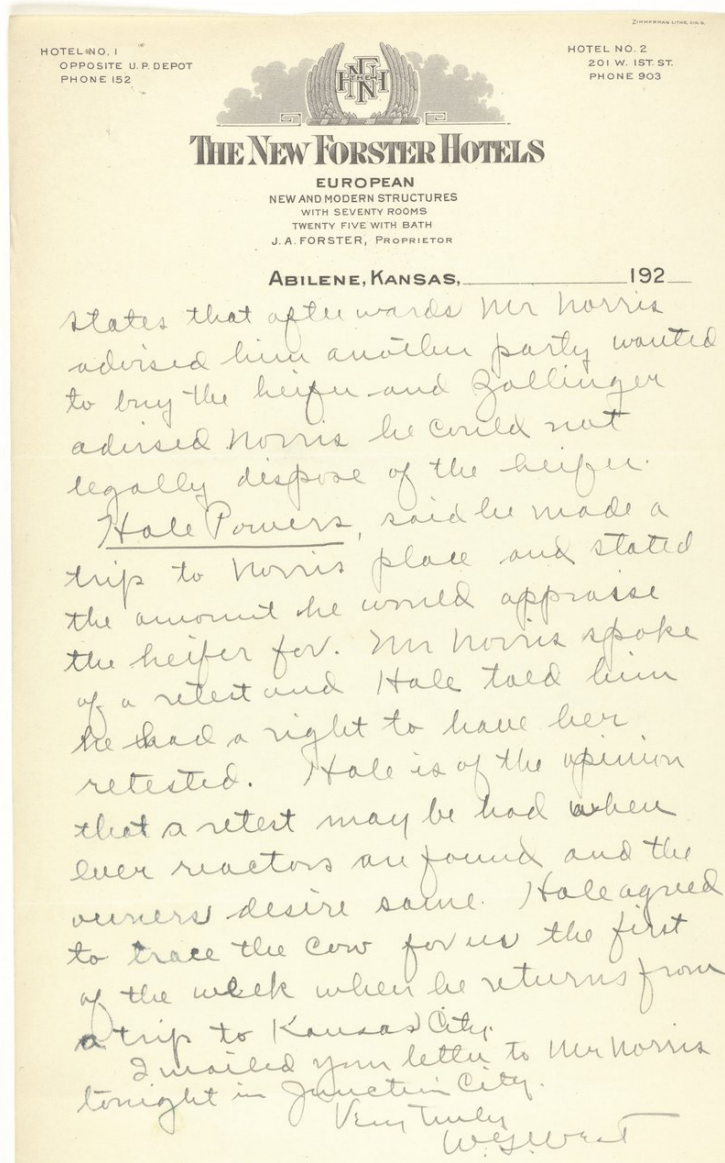 ZIMMERMAN LITHO. CIN. O.
HOTEL NO. 1
OPPOSITE U.P. DEPOT
PHONE 152
HOTEL NO. 2
201 W. 1ST. ST.
PHONE 903
THE NEW FORSTER HOTELS
EUROPEAN
NEW AND MODERN STRUCTURES
WITH SEVENTY ROOMS
TWENTY FIVE WITH BATH
J. A. FORSTER, PROPRIETOR
ABILENE, KANSAS, 192
states that afterwards Mr Norris
advised him another party wanted
to buy the heifer and Zollinger
advised Norris he could not
legally dispose of the heifer.
Hale Powers, said he made a
trip to Norris place and stated
the amount he would appraise
the heifer for. Mr Norris spoke
of a retest and Hale told him
he had a right to have her
retested. Hale is of the opinion
that a retest may be had when
ever reactors are found and the
owners desire same. Hale agreed
to trace the cow for us the first
of the week when he returns from
a trip to Kansas City.
I mailed your letter to Mr Norris
tonight in Junction City.
Very Truly
W.G. West